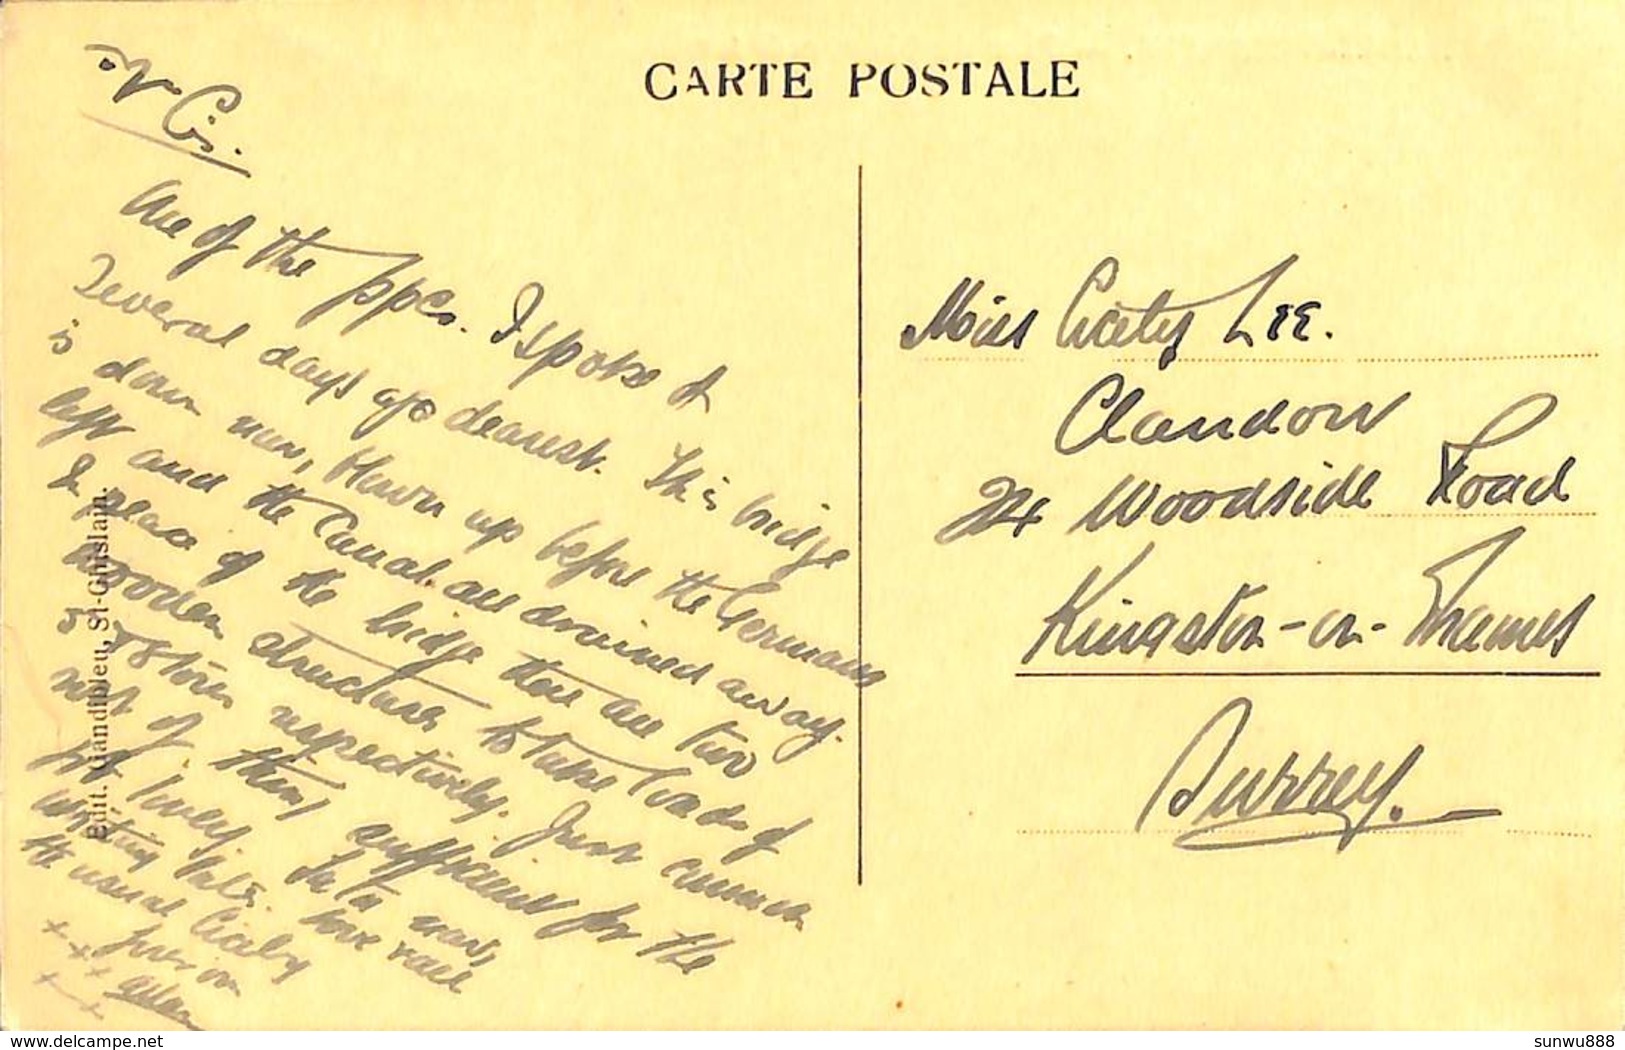 CARTE POSTALE
Cis.
One of the ppcs. I spoke of
several days ago dearest. This bridge
is down now, blown up before the Germans
left and the Canal all drained away.
In place of the bridge there are two
wooden structures to take loads of
5 & 8 tons respectively. Just cannon
not of them, sufficient for the
lovely
writing
the usual Cicely
xxx
xx
Edit. Giandbleu, St-Ghislain.
Miss Cicely Lee.
Clandon
24 Woodside Road
Kingston-on-Thames
Surrey.
delcampe.net
sunwu888